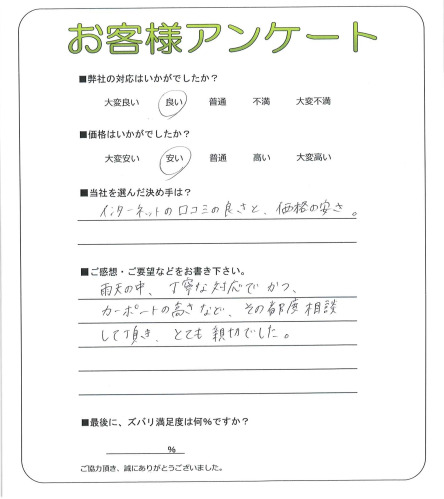 お客様アンケート
■弊社の対応はいかがでしたか?
大変良い 良い 普通 不満 大変不満
■価格はいかがでしたか?
大変安い 安い 普通 高い 大変高い
■当社を選んだ決め手は?
インターネットの口コミの良さと、価格の安さ。
■ご感想・ご要望などをお書き下さい。
雨天の中、丁寧な対応でかつ、
カーポートの高さなど、その都度相談
して頂き、とても親切でした。
■最後に、ズバリ満足度は何%ですか?
%
ご協力頂き、誠にありがとうございました。